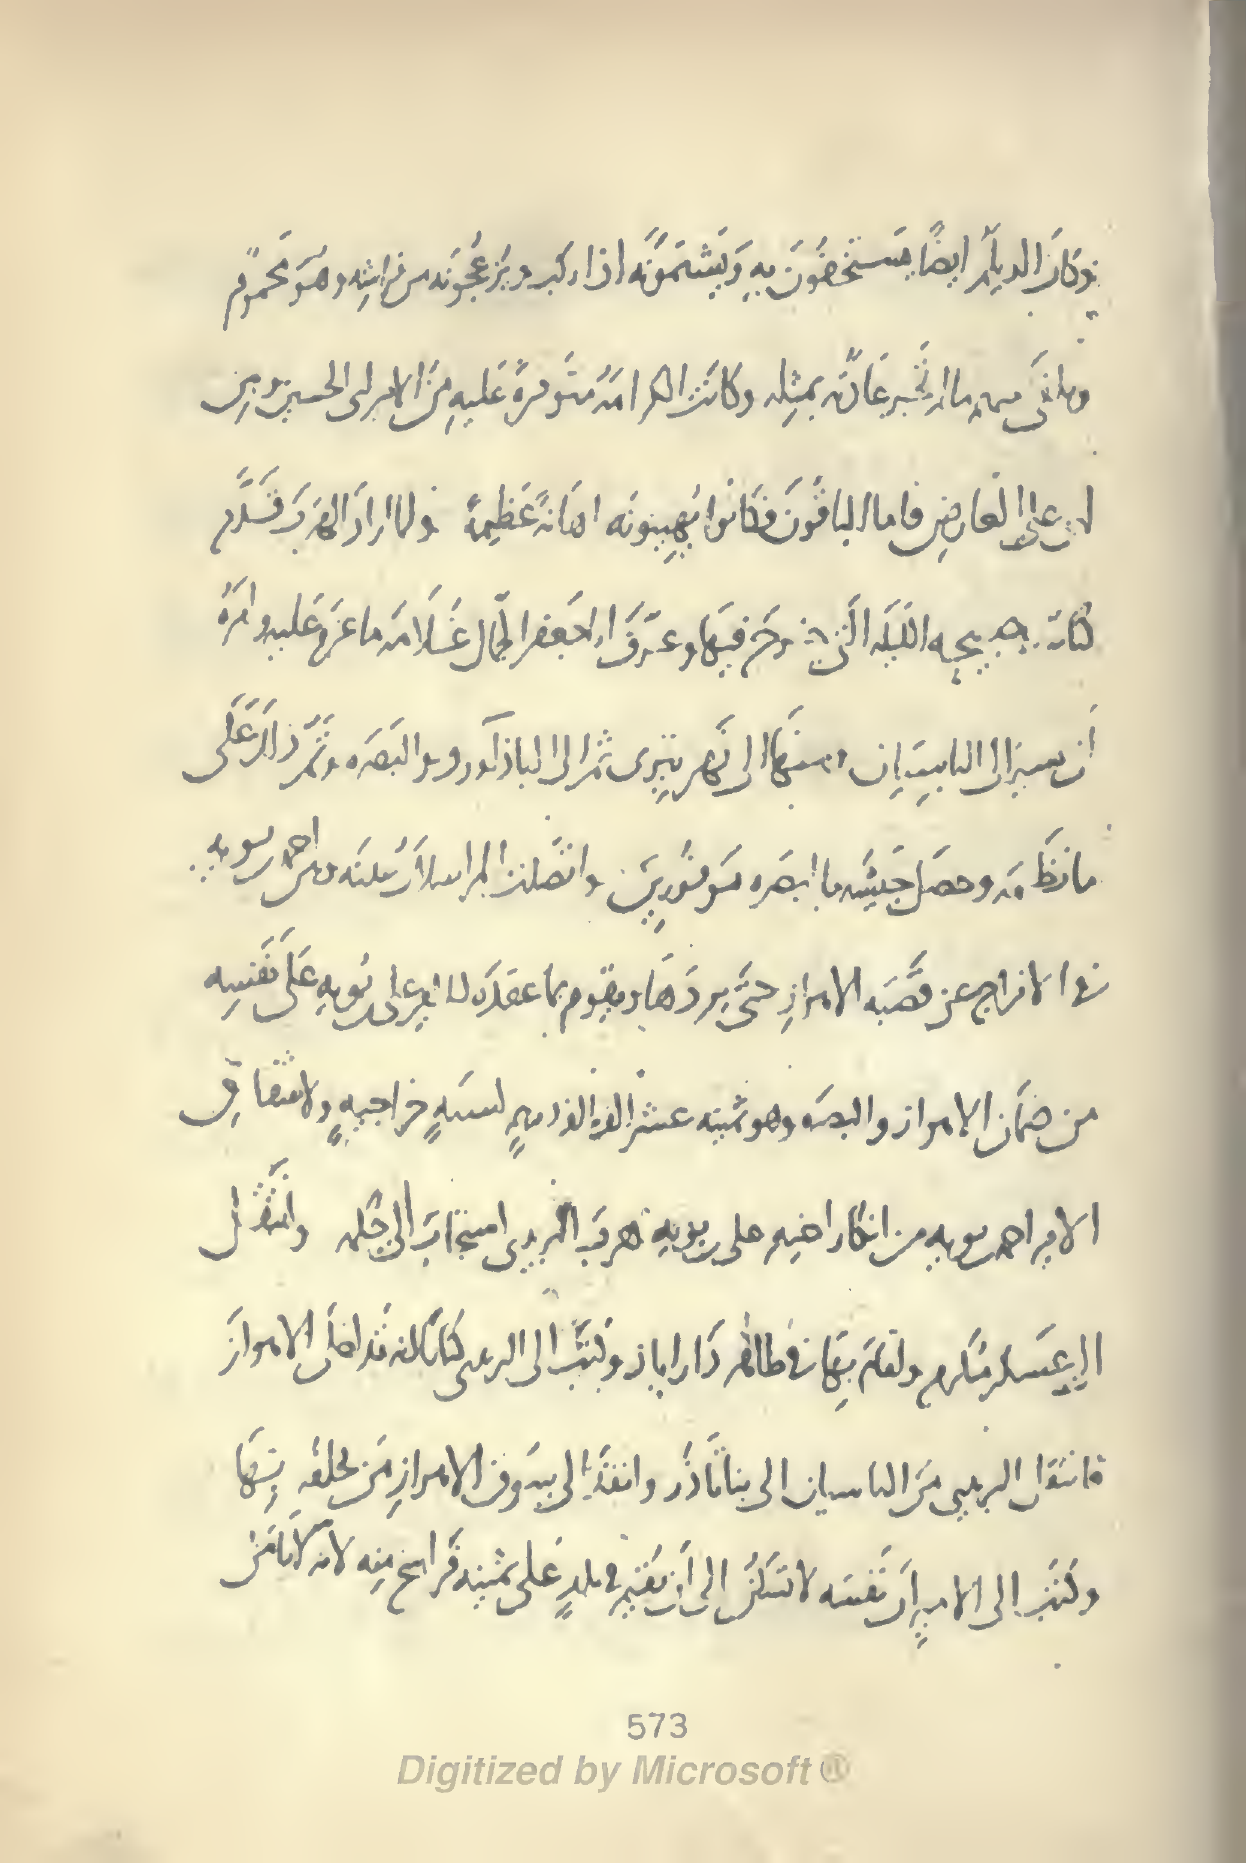 وكانَ الديلَمُ ايضًا يَستخِفُّونَ بهِ وَيَشتمُونَه اذا ركب ويُزعجُونَه من فراشِه وهُوَ مَحمُومٌ
ويلقَى منهم ما لم تَجرِ عَادَتُه بمثِله وكانَت الكرامَةُ مُتوفرةً عَليهِ مِنَ الامير ابى الحسين ومِن
ابى على العارضِ فاما الباقُونَ فكانُوا يُهِينونَه اهَانَةً عَظِيمةً ولما ارادَ الهَرَبَ قَدَّم
كُتابَه صبيحةِ الليلَة التى خرجَ فيهَا وعرَّفَ ابا جَعفر الجمال غُلَامَه ما عَزمَ عَليه وامَرَهُ
أن يسيرَ الى الباسِيَانِ ومنهَا الى نَهرِ تِيرى ثم الى الباذاَورد والبَصَره وتمَّ ذلكَ عَلَى
ما نَظَمَه وحصَلَ جَيشُه بالبصَره مَوفُورِينَ واتَّصلَت المراسلاتُ بينَه وبين احمد بن بويه
فى الافراج عن قصَبَه الاهوازِ حتَّى يردَهَا ويقوم بما عقدَه لابى على بن بُويهِ عَلَى نَفسِه
من ضمَان الاهواز والبصرَه وهو ثمنيه عشر الف الف درهمٍ لسَنهٍ خراجيهٍ ولاشفاقِ
الامير احمد بن بويه من انكار اخيه على بن بويه هربَ البريدى استجابَ الى ذلك وانتقَلَ
الى عَسكر مُكرم واقامَ بِهَا فى ظاهر دَار اباذ وكتَبَ الى البريدى كتابًا بانه قد اخلى الاهوازَ
فانتقَل البريدى مِنَ الباسيان الى بناتاذَر وانفَذَ الى سُوق الاهوازِ مَن يخلفُه بِهَا
وكَتبَ الى الاميرِ أنَّ نَفسَه لا تَسكُنُ الى أن يُقيم فى بلدٍ عَلى ثمنيه فَراسخ مِنه لانه لا يَامَنُ
573
Digitized by Microsoft ®